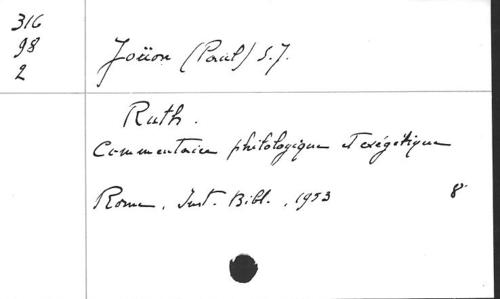 316
98
2
Joüon (Paul) S.J.
Ruth.
Commentaire philologique et exégétique
Rome, Inst. Bibl., 1953 8°